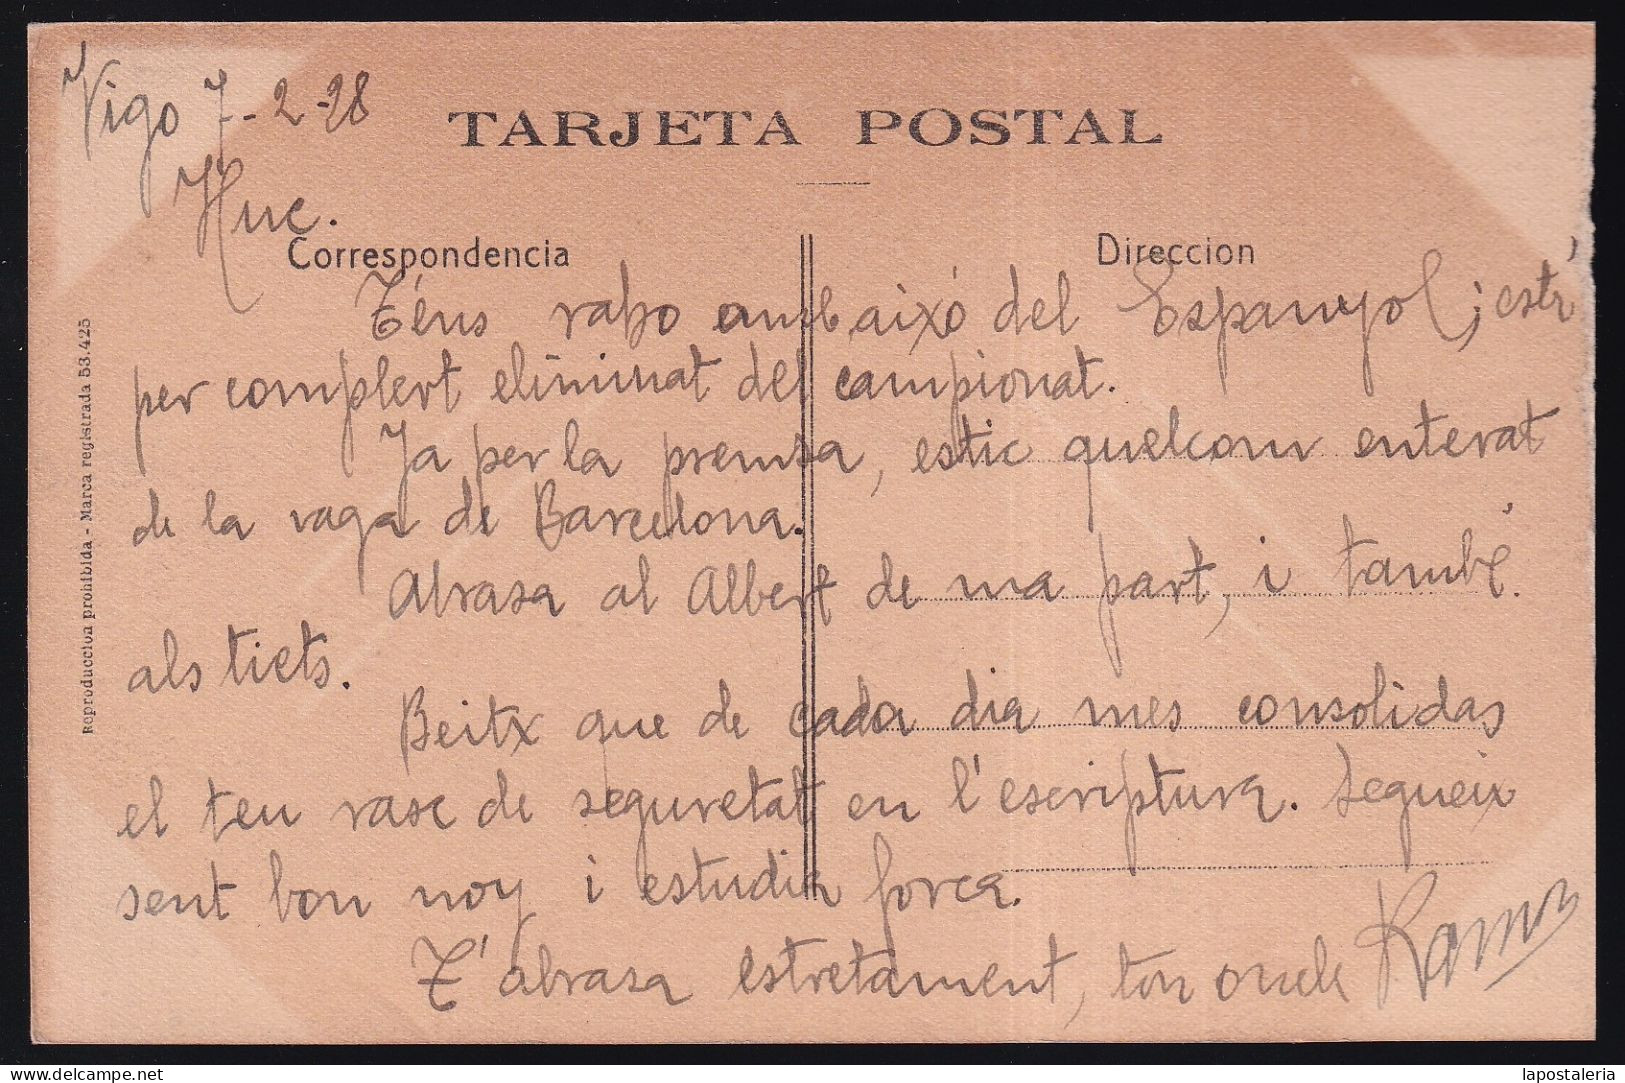 Vigo 7-2-28
TARJETA POSTAL
Huc.
Correspondencia
Direccion
Téns raho amb aixó del Espanyol; está
per complert eliminat del campionat.
Ja per la premsa, estic quelcom enterat
de la vaga de Barcelona.
Abrasa al Albert de ma part, i també
als tiets.
Beitx que de cada dia mes consolidas
el teu rasc de seguretat en l'escriptura. Segueix
sent bon noy i estudia força.
T'abrasa estretament, ton oncle Ramon
Reproduccion prohibida - Marca registrada 53.425
delcampe.net
lapostaleria